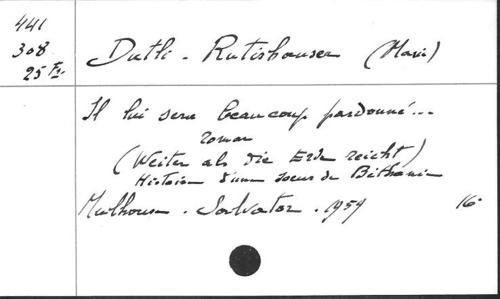 441
308
25 Fr.
Dutli - Rutishauser (Maria)
Il lui sera beaucoup pardonné...
roman
(Weiter als die Erde reicht)
Histoire d'une soeur de Béthanie
Mulhouse - Salvator - 1959 16°